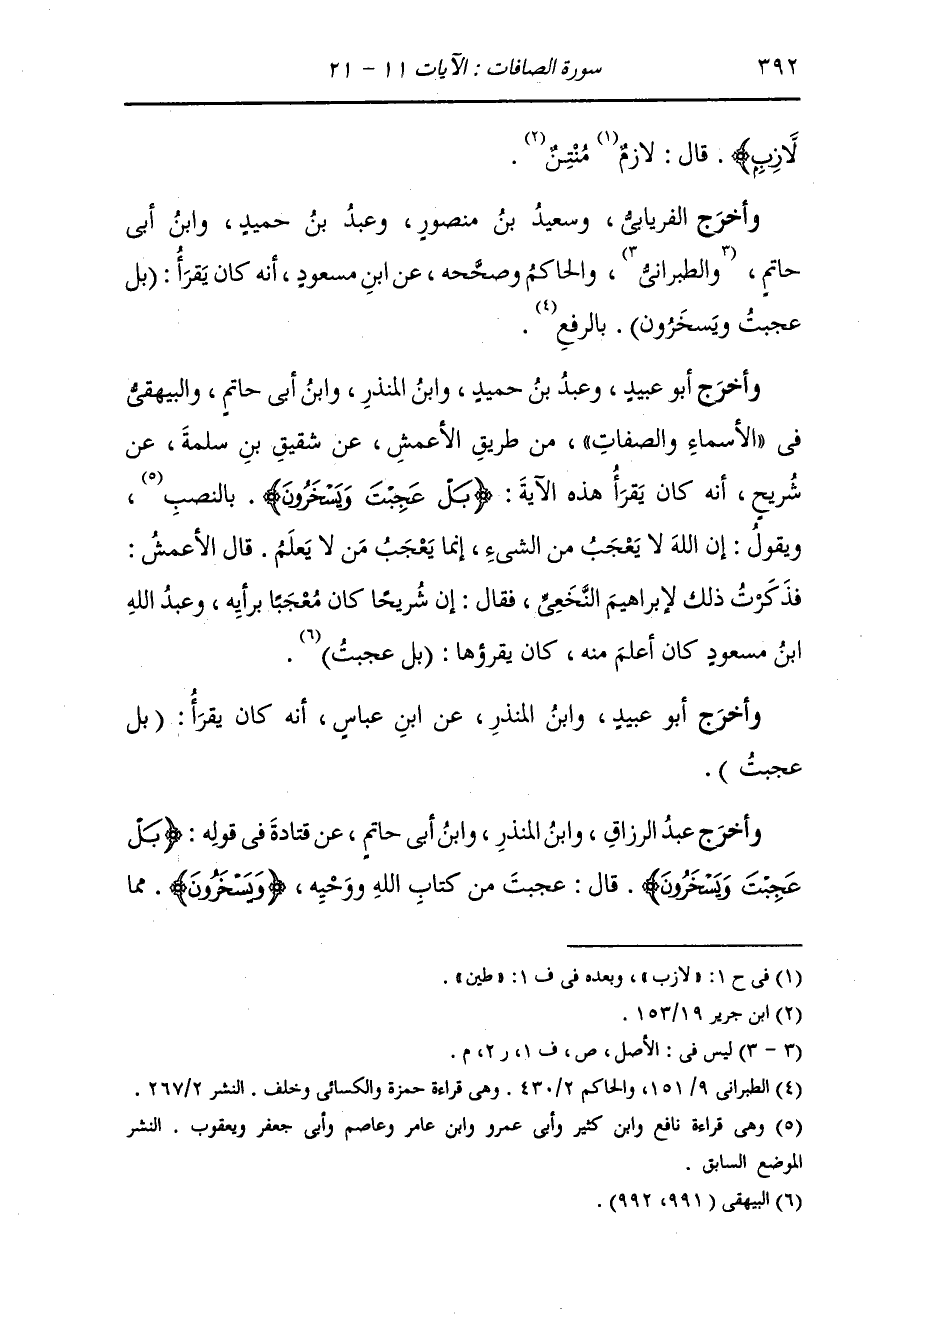 ٣٩٢ سورة الصافات : الآيات ١١ – ٢١
لَّازِبٍ﴾ . قال : لازمٌ(١) مُنْتِنٌ(٢) .
وأخرَج الفريابيُّ ، وسعيدُ بنُ منصورٍ ، وعبدُ بنُ حميدٍ ، وابنُ أبى
حاتمٍ ، (٣والطبرانىُّ٣) ، والحاكمُ وصحَّحه ، عن ابنِ مسعودٍ ، أنه كان يَقرَأُ : (بل
عجبتُ ويَسخَرُون) . بالرفعِ(٤) .
وأخرَج أبو عبيدٍ ، وعبدُ بنُ حميدٍ ، وابنُ المنذرِ ، وابنُ أبى حاتمٍ ، والبيهقىُّ
فى «الأسماءِ والصفاتِ» ، من طريقِ الأعمشِ ، عن شقيقِ بنِ سلمةَ ، عن
شُريحٍ ، أنه كان يَقرَأُ هذه الآيةَ : ﴿بَلْ عَجِبْتَ وَيَسْخَرُونَ﴾ . بالنصبِ(٥) ،
ويقولُ : إن اللهَ لا يَعْجَبُ من الشىءِ ، إنما يَعْجَبُ مَن لا يَعلَمُ . قال الأعمشُ :
فذَكَرْتُ ذلك لإبراهيمَ النَّخَعِىِّ ، فقال : إن شُريحًا كان مُعْجَبًا برأيِه ، وعبدُ اللهِ
ابنُ مسعودٍ كان أعلمَ منه ، كان يقرؤها : (بل عجبتُ)(٦) .
وأخرَج أبو عبيدٍ ، وابنُ المنذرِ ، عن ابنِ عباسٍ ، أنه كان يقرَأُ : ( بل
عجبتُ ) .
وأخرَج عبدُ الرزاقِ ، وابنُ المنذرِ ، وابنُ أبى حاتمٍ ، عن قتادةَ فى قولِه : ﴿بَلْ
عَجِبْتَ وَيَسْخَرُونَ﴾ . قال : عجبتَ من كتابِ اللهِ ووَحْيِه ، ﴿وَيَسْخَرُونَ﴾ . مما
(١) فى ح ١: «لازب» ، وبعده فى ف ١: «طين» .
(٢) ابن جرير ١٥٣/١٩ .
(٣ – ٣) ليس فى : الأصل ، ص ، ف ١، ر ٢، م .
(٤) الطبرانى ٩/ ١٥١، والحاكم ٤٣٠/٢ . وهى قراءة حمزة والكسائى وخلف . النشر ٢٦٧/٢ .
(٥) وهى قراءة نافع وابن كثير وأبى عمرو وابن عامر وعاصم وأبى جعفر ويعقوب . النشر
الموضع السابق .
(٦) البيهقى ( ٩٩١، ٩٩٢) .